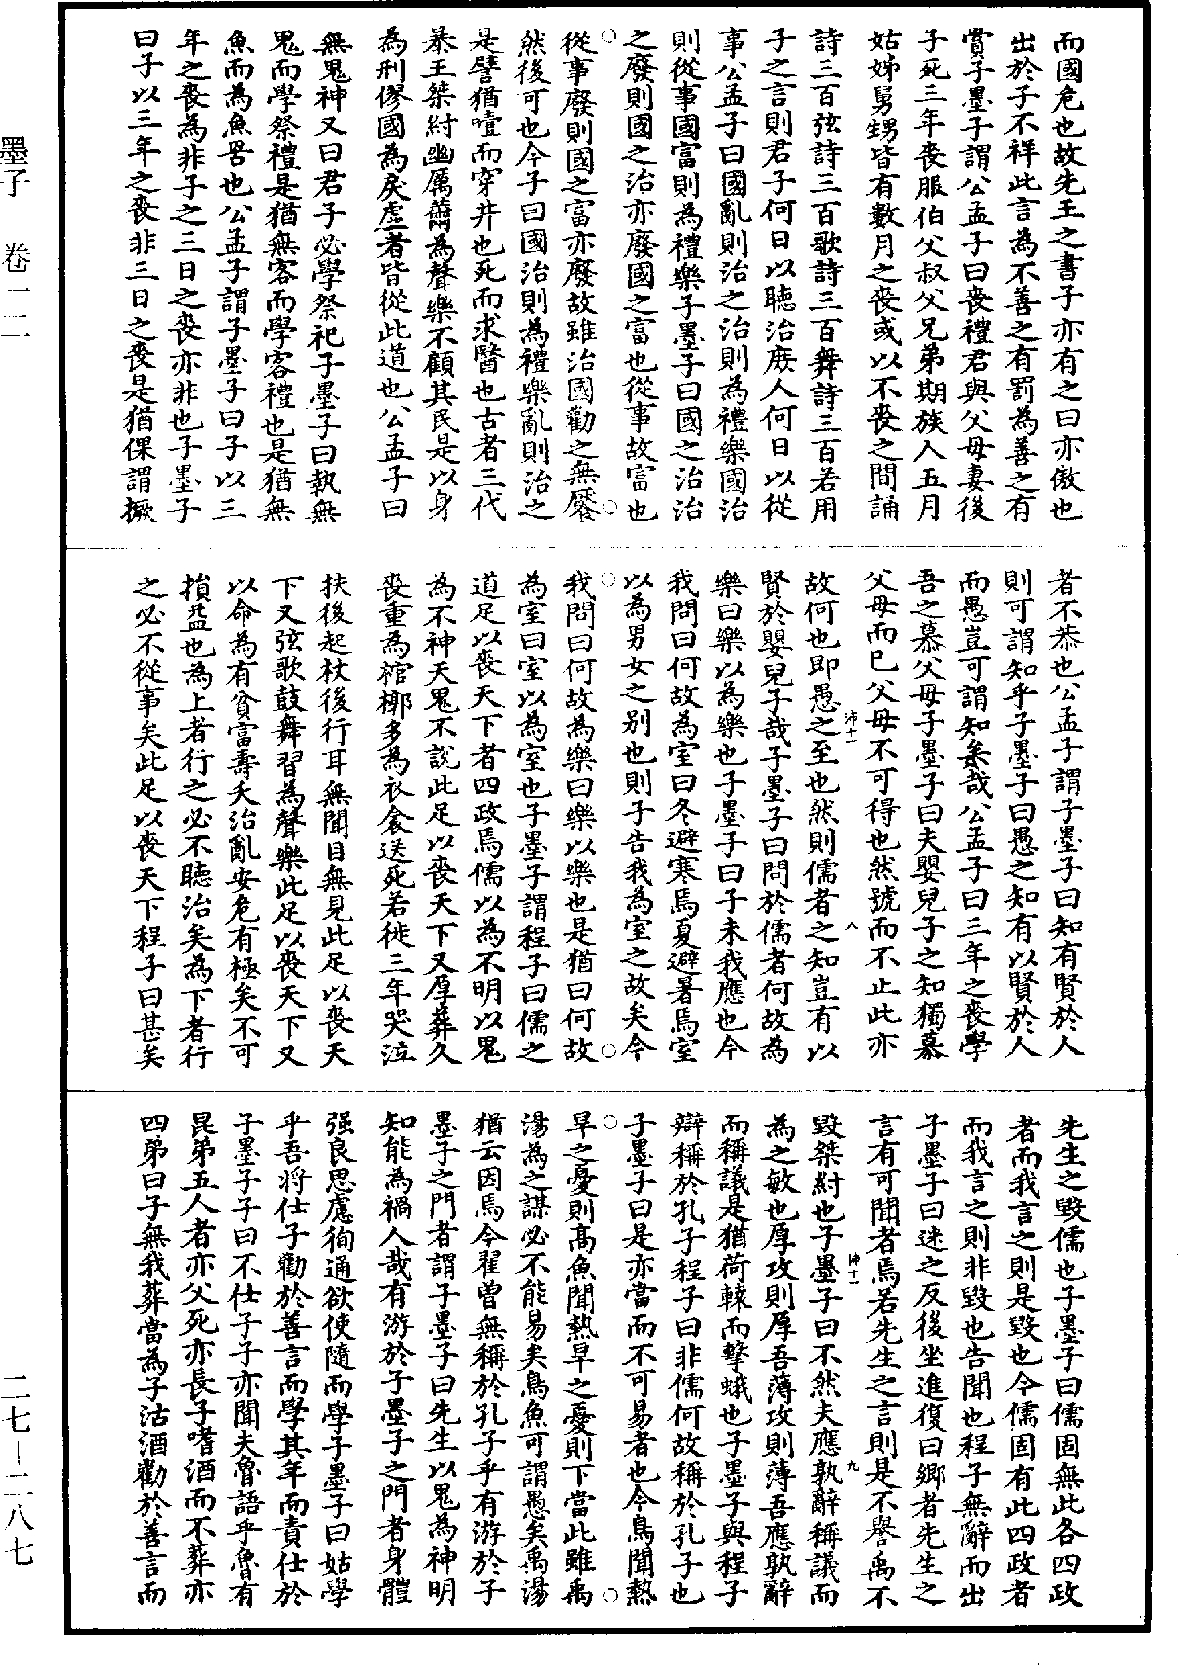 而國危也故先王之書子亦有之曰亦傲也
出於子不祥此言為不善之有罰為善之有
賞子墨子謂公孟子曰喪禮君與父母妻後
子死三年喪服伯父叔父兄弟期族人五月
姑姊舅甥皆有數月之喪或以不喪之間誦
詩三百弦詩三百歌詩三百舞詩三百若用
子之言則君子何日以聽治庶人何日以從
事公孟子曰國亂則治之治則為禮樂國治
則從事國富則為禮樂子墨子曰國之治治
之廢則國之治亦廢國之富也從事故富也
從事廢則國之富亦廢故雖治國勸之無饜
然後可也今子曰國治則為禮樂亂則治之
是譬猶噎而穿井也死而求醫也古者三代
暴王桀紂幽厲薾為聲樂不顧其民是以身
為刑僇國為戾虛者皆從此道也公孟子曰
無鬼神又曰君子必學祭祀子墨子曰執無
鬼而學祭禮是猶無客而學客禮也是猶無
魚而為魚罟也公孟子謂子墨子曰子以三
年之喪為非子之三日之喪亦非也子墨子
曰子以三年之喪非三日之喪是猶倮謂撅
者不恭也公孟子謂子墨子曰知有賢於人
則可謂知乎子墨子曰愚之知有以賢於人
而愚豈可謂知矣哉公孟子曰三年之喪學
吾之慕父母子墨子曰夫嬰兒子之知獨慕
父母而已父母不可得也然號而不止此亦
故何也即愚之至也然則儒者之知豈有以
沛十一
八
賢於嬰兒子哉子墨子曰問於儒者何故為
樂曰樂以為樂也子墨子曰子未我應也今
我問曰何故為室曰冬避寒焉夏避暑焉室
以為男女之別也則子告我為室之故矣今
我問曰何故為樂曰樂以樂也是猶曰何故
為室曰室以為室也子墨子謂程子曰儒之
道足以喪天下者四政焉儒以為不明以鬼
為不神天鬼不說此足以喪天下又厚葬久
喪重為棺槨多為衣衾送死若徙三年哭泣
扶後起杖後行耳無聞目無見此足以喪天
下又弦歌鼓舞習為聲樂此足以喪天下又
以命為有貧富壽夭治亂安危有極矣不可
損益也為上者行之必不聽治矣為下者行
之必不從事矣此足以喪天下程子曰甚矣
先生之毀儒也子墨子曰儒固無此各四政
者而我言之則是毀也今儒固有此四政者
而我言之則非毀也告聞也程子無辭而出
子墨子曰迷之反後坐進復曰鄉者先生之
言有可聞者焉若先生之言則是不譽禹不
毀桀紂也子墨子曰不然夫應孰辭稱議而
沛十一
九
為之敏也厚攻則厚吾薄攻則薄吾應孰辭
而稱議是猶荷轅而擊蛾也子墨子與程子
辯稱於孔子程子曰非儒何故稱於孔子也
子墨子曰是亦當而不可易者也今鳥聞熱
旱之憂則高魚聞熱旱之憂則下當此雖禹
湯為之謀必不能易矣鳥魚可謂愚矣禹湯
猶云因焉今翟曾無稱於孔子乎有游於子
墨子之門者謂子墨子曰先生以鬼為神明
知能為禍人哉有游於子墨子之門者身體
強良思慮徇通欲使隨而學子墨子曰姑學
乎吾將仕子勸於善言而學其年而責仕於
子墨子子曰不仕子子亦聞夫魯語乎魯有
昆弟五人者亦父死亦長子嗜酒而不葬亦
四弟曰子無我葬當為子沽酒勸於善言而
墨子　卷一二
二七－二八七